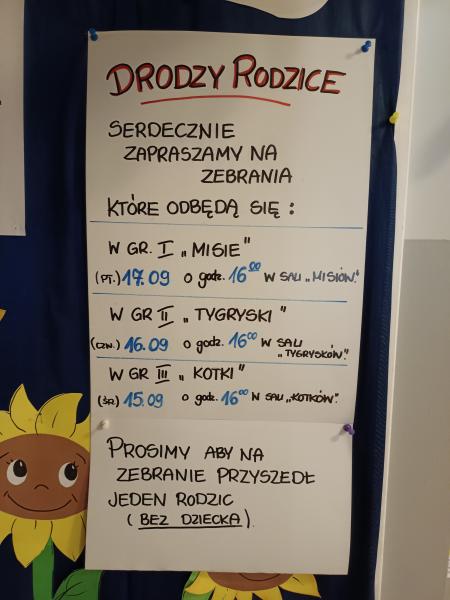 DRODZY RODZICE
SERDECZNIE
ZAPRASZAMY NA
ZEBRANIA
KTÓRE ODBĘDĄ SIĘ :
W GR. I „MISIE"
(PT.) 17.09 o godz. 16⁰⁰ W SALI „MISIÓW".
W GR II „TYGRYSKI"
(CZW.) 16.09 o godz. 16⁰⁰ W SALI
„TYGRYSKÓW".
W GR III „KOTKI"
(ŚR) 15.09 o godz. 16⁰⁰ W SALI „KOTKÓW".
PROSIMY ABY NA
ZEBRANIE PRZYSZEDŁ
JEDEN RODZIC
(BEZ DZIECKA).